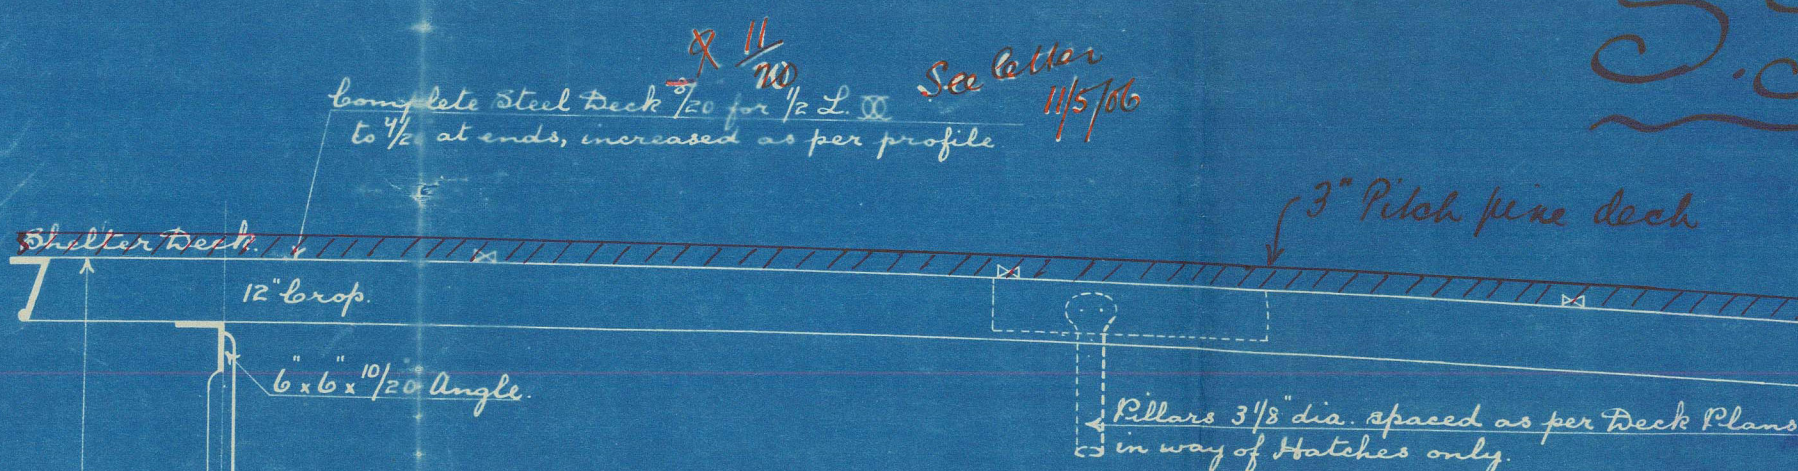 11/20
See letter
11/5/06
S.S
Complete Steel Deck /20 for 1/2 L.
to 4/20 at ends, increased as per profile
3" Pitch pine deck
Shelter Deck.
12" Crop.
6" x 6" x 10/20 Angle.
Pillars 3 1/8" dia. spaced as per Deck Plans
in way of Hatches only.